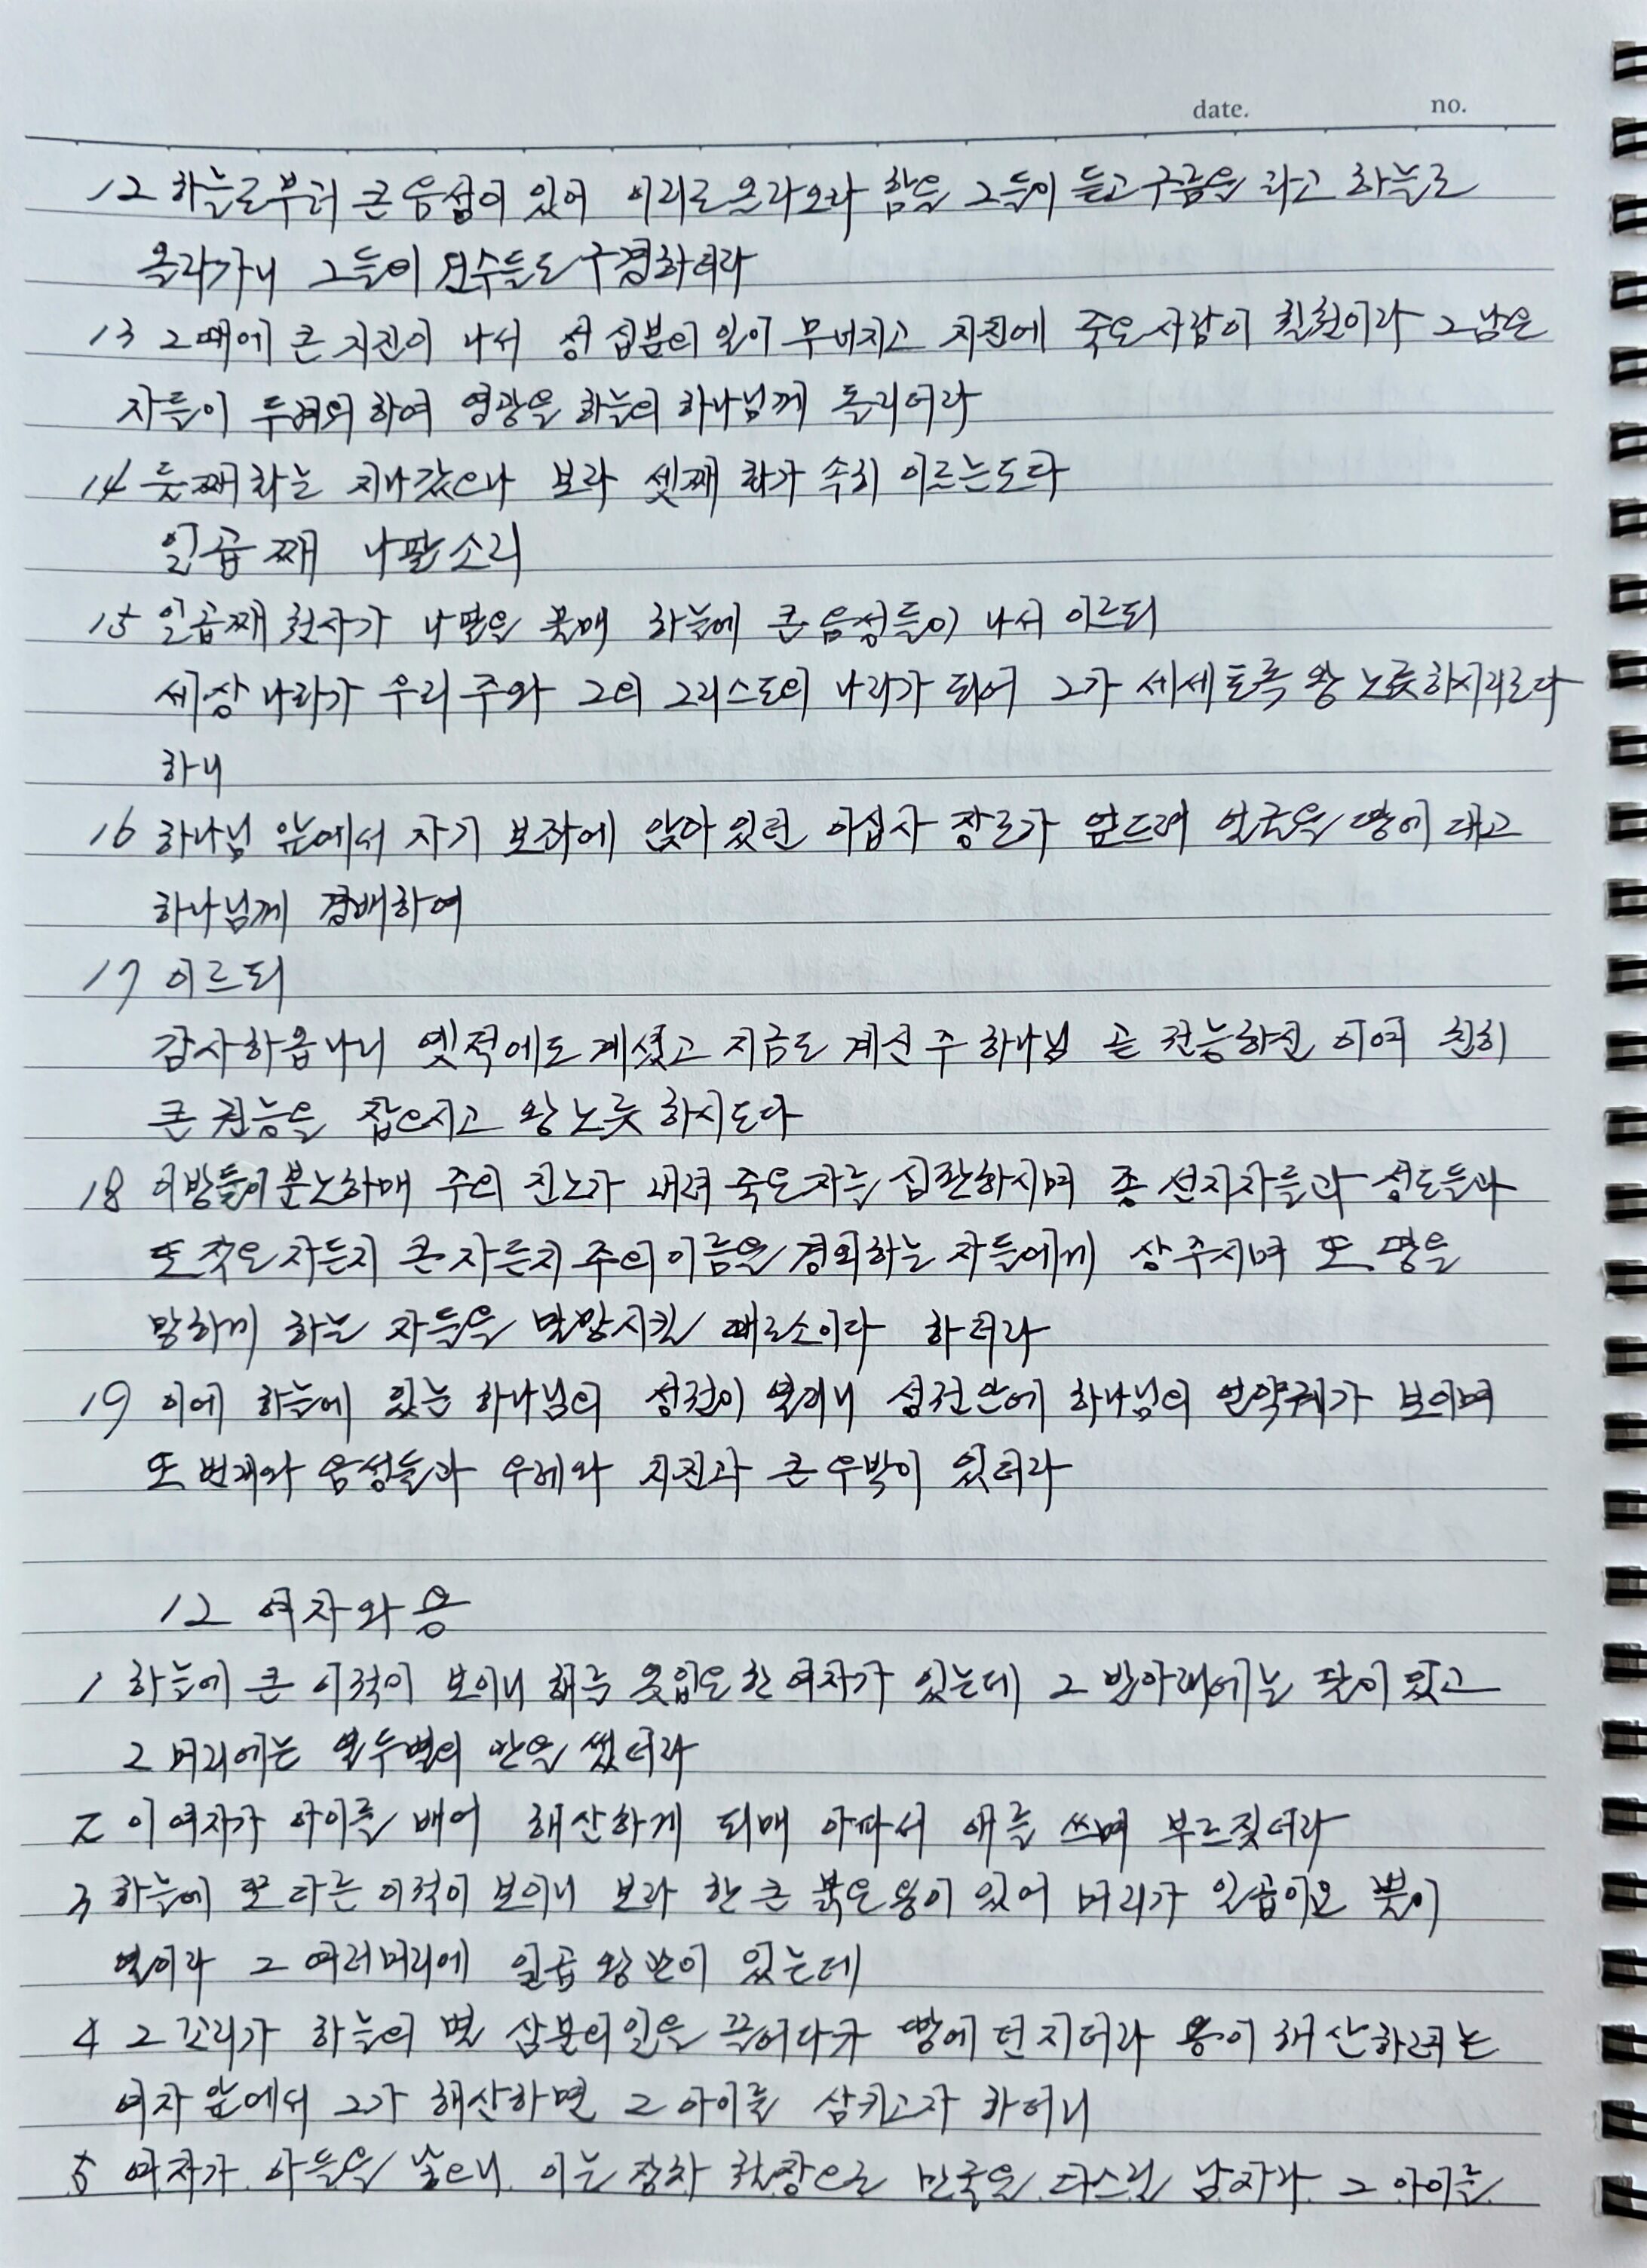 date. no.
12 하늘로부터 큰 음성이 있어 이리로 올라오라 함을 그들이 듣고 구름을 타고 하늘로
올라가니 그들의 원수들도 구경하더라
13 그때에 큰 지진이 나서 성 십분의 일이 무너지고 지진에 죽은 사람이 칠천이라 그 남은
자들이 두려워하여 영광을 하늘의 하나님께 돌리더라
14 둘째 화는 지나갔으나 보라 셋째 화가 속히 이르는도다
일곱째 나팔소리
15 일곱째 천사가 나팔을 불매 하늘에 큰 음성들이 나서 이르되
세상 나라가 우리 주와 그의 그리스도의 나라가 되어 그가 세세토록 왕 노릇 하시리로다
하니
16 하나님 앞에서 자기 보좌에 앉아 있던 이십사 장로가 엎드려 얼굴을 땅에 대고
하나님께 경배하여
17 이르되
감사하옵나니 옛적에도 계셨고 지금도 계신 주 하나님 곧 전능하신 이여 친히
큰 권능을 잡으시고 왕 노릇 하시도다
18 이방들이 분노하매 주의 진노가 내려 죽은 자를 심판하시며 종 선지자들과 성도들과
또 작은 자든지 큰 자든지 주의 이름을 경외하는 자들에게 상 주시며 또 땅을
망하게 하는 자들을 멸망시킬 때로소이다 하더라
19 이에 하늘에 있는 하나님의 성전이 열리니 성전 안에 하나님의 언약궤가 보이며
또 번개와 음성들과 우레와 지진과 큰 우박이 있더라
12 여자와 용
1 하늘에 큰 이적이 보이니 해를 옷 입은 한 여자가 있는데 그 발 아래에는 달이 있고
그 머리에는 열두 별의 관을 썼더라
2 이 여자가 아이를 배어 해산하게 되매 아파서 애를 쓰며 부르짖더라
3 하늘에 또 다른 이적이 보이니 보라 한 큰 붉은 용이 있어 머리가 일곱이요 뿔이
열이라 그 여러 머리에 일곱 왕관이 있는데
4 그 꼬리가 하늘의 별 삼분의 일을 끌어다가 땅에 던지더라 용이 해산하려는
여자 앞에서 그가 해산하면 그 아이를 삼키고자 하더니
5 여자가 아들을 낳으니 이는 장차 철장으로 만국을 다스릴 남자라 그 아이를